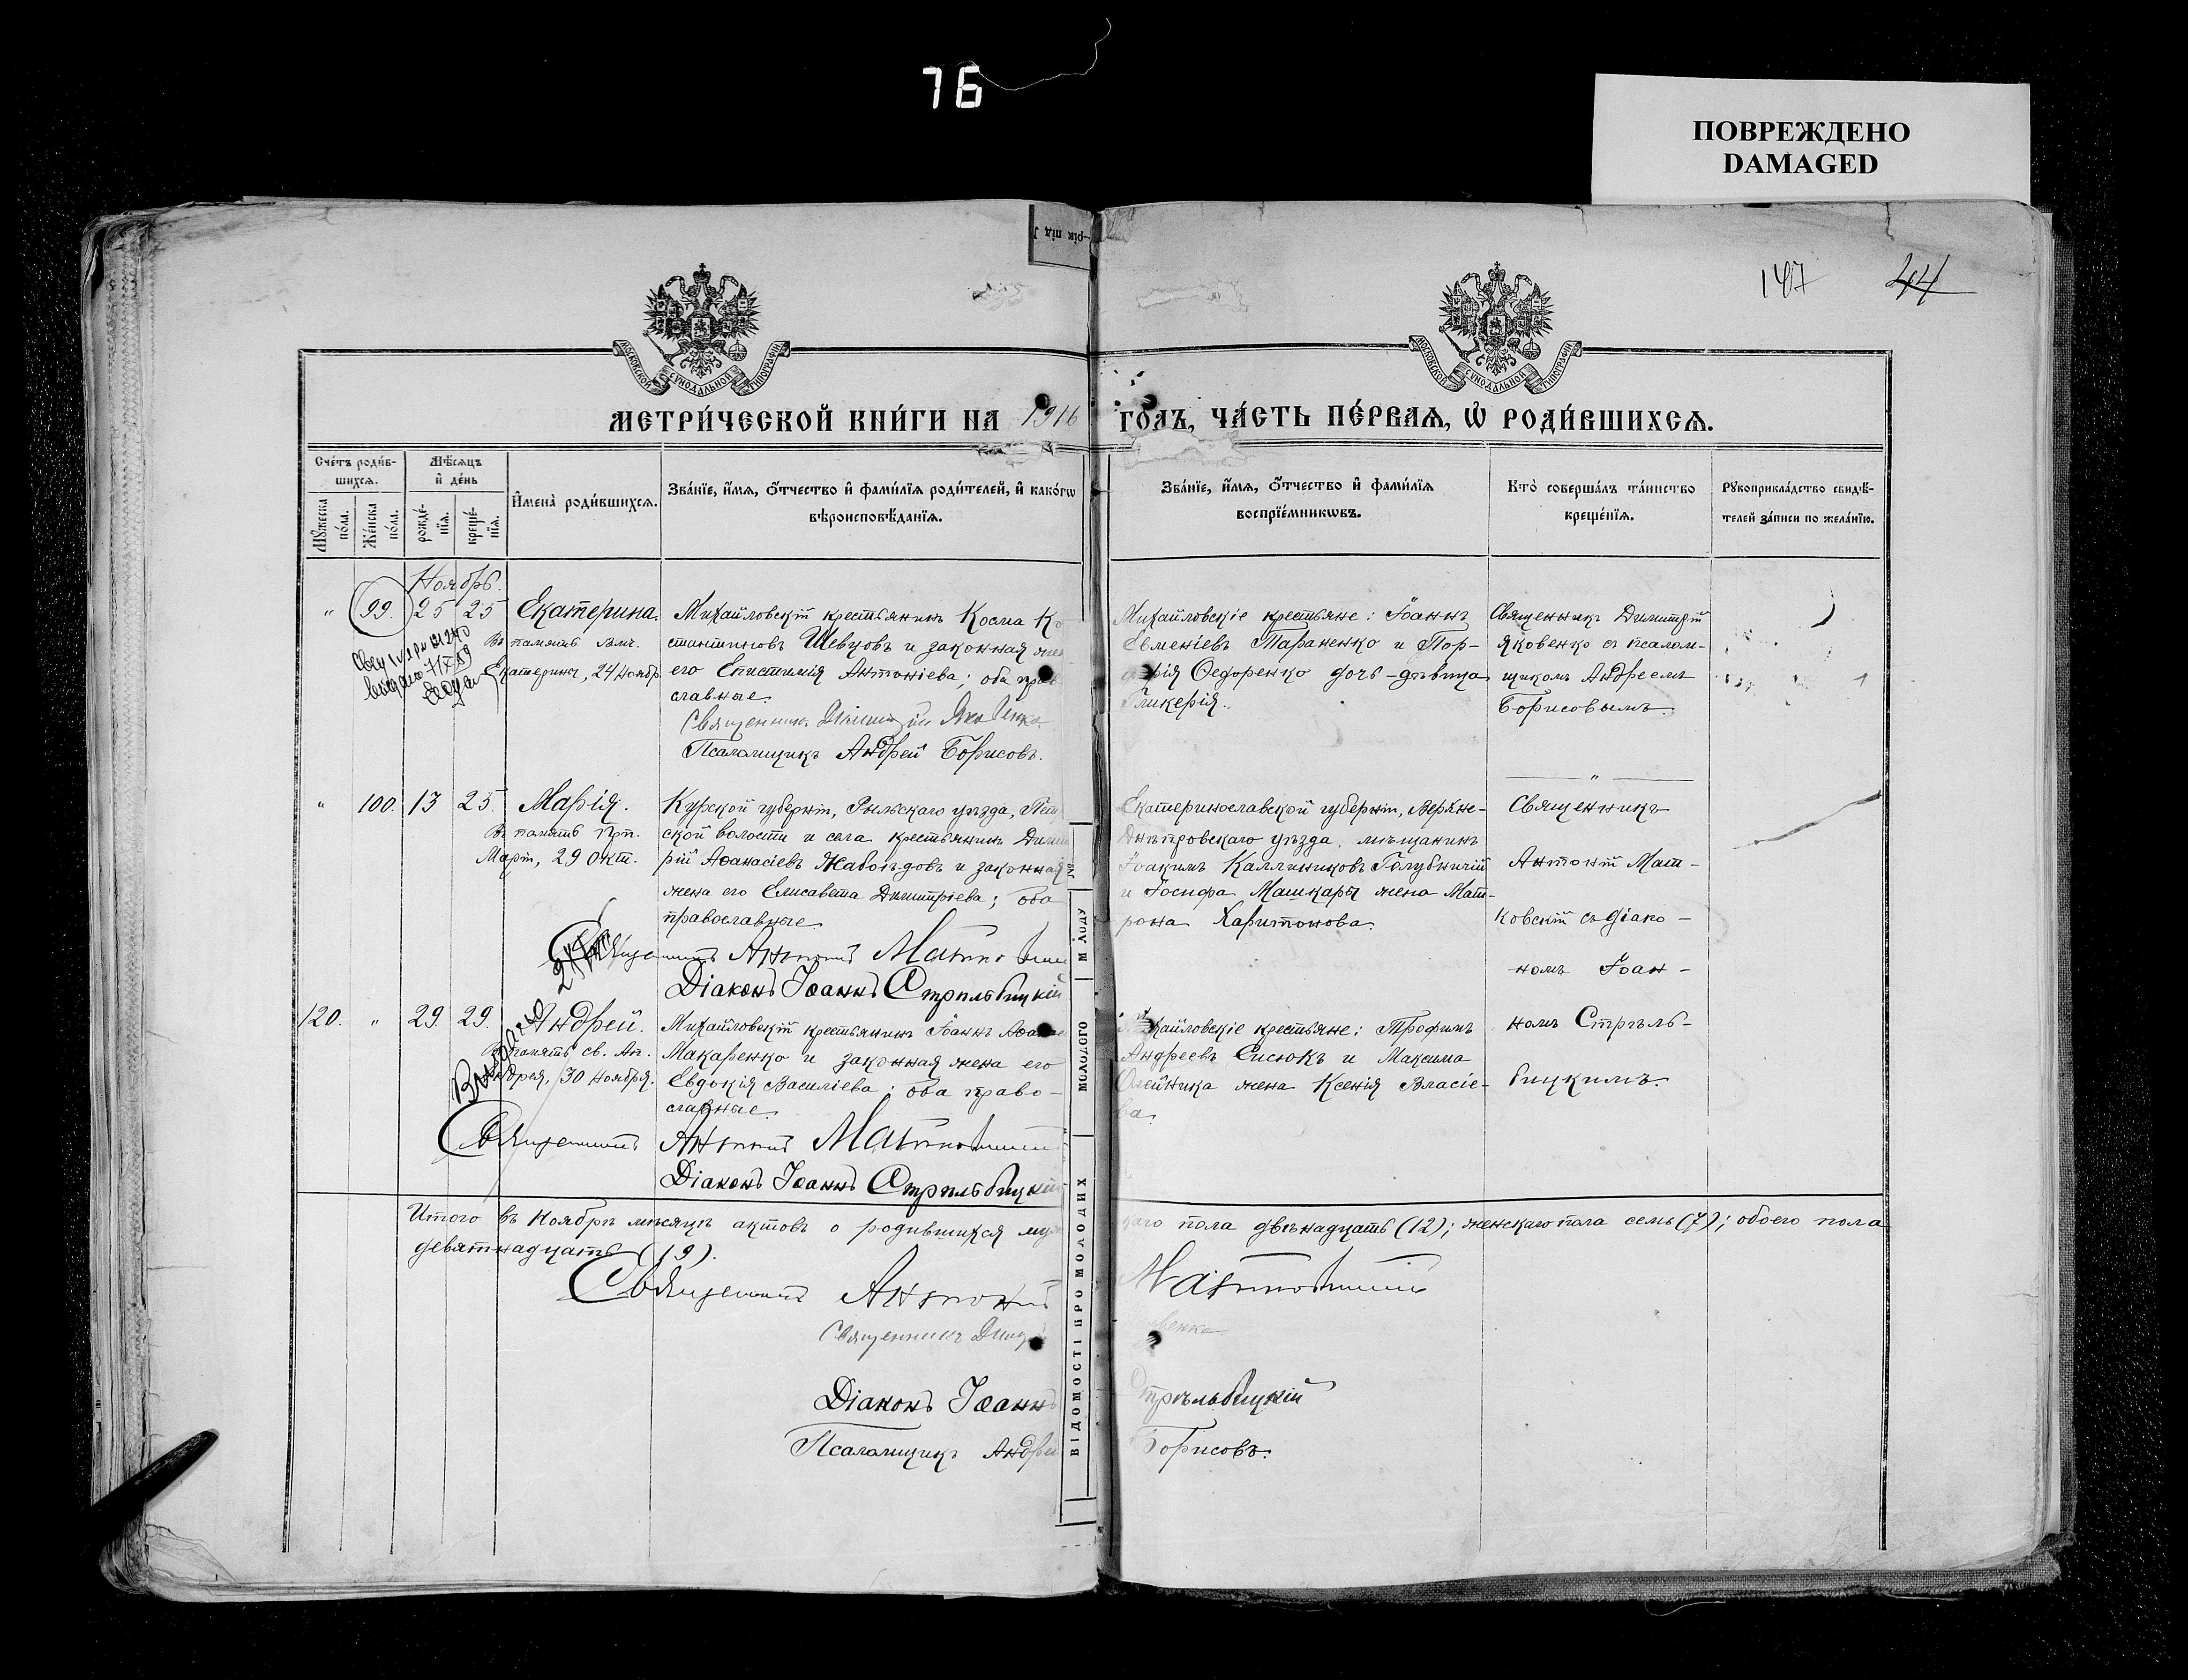 76
ПОВРЕЖДЕНО
DAMAGED
-рік під
147 44
МОСКОВСКОЙ СУНОДАЛЬНОЙ ТИПОГРАФІИ
МОСКОВСКОЙ СУНОДАЛЬНОЙ ТИПОГРАФІИ
МЕТРИ́ЧЕСКОЙ КНИ́ГИ НА 1916 ГОДЪ, ЧА́СТЬ ПЕ́РВАѦ, Ѡ҆ РОДИ́ВШИХСѦ.
Сче́тъ роди́в-
шихсѧ.
Мꙋ́жеска по́ла.
Же́нска по́ла.
Мѣ́сѧцъ
и҆ де́нь
рожде́-нїѧ.
креще́-нїѧ.
И҆мена̀ роди́вшихсѧ.
Зва́нїе, и҆́мѧ, ѻ҆́тчество и҆ фами́лїѧ роди́телей, и҆ како́гѡ
вѣроисповѣ́данїѧ.
Зва́нїе, и҆́мѧ, ѻ҆́тчество и҆ фами́лїѧ
воспрїе́мникѡвъ.
Кто̀ соверша́лъ та́инство
креще́нїѧ.
Рꙋкоприкла́дство свидѣ́-
телей за́писи по жела́нїю.
Ноябрь.
" 99. 25 25 Екатерина.
Въ память влмч.
Екатерины, 24 Ноябр.
Михайловскій крестьянинъ Косма Ко
стантиновъ Шевцовъ и законная жен
его Епистимія Антоніева; оба прав
славные.
Священникъ Димитрій Яковенко.
Псаломщикъ Андрей Борисовъ.
Михайловскіе крестьяне: Іоаннъ
Евменіевъ Тараненко и Пор-
фирія Ѳедоренко дочь-дѣвица
Гликерія.
Священникъ Димитрій
Яковенко съ псалом-
щикомъ Андреемъ
Борисовымъ.
" 100. 13 25 Марія.
Въ память прп.
Маріи, 29 Окт.
Курской губерніи, Рыльскаго уѣзда,
ской волости и села крестьянинъ Дими
рій Аѳанасіевъ и законная
жена его Елисавета Димитріева; оба
православные
Священникъ Антоній Матковскій
Діаконъ Іоаннъ Стрѣльбицкій
Екатеринославской губерніи, Верхне-
Днѣпровскаго уѣзда, мѣщанинъ
Іоакимъ Каллиниковъ Голубничій
и Іосифа Машкары жена Мат-
рона Харитонова.
"
Священникъ
Антоній Мат-
ковскій съ діако-
номъ Іоан-
номъ Стрѣль-
бицкимъ.
120. " 29. 29. Андрей.
Въ память св. Ап.
Андрея, 30 Ноября.
Выдано
Михайловскій крестьянинъ Іоаннъ
Макаренко и законная жена его
Евдокія Василіева; оба право-
славные.
Священникъ Антоній Матковскій
Діаконъ Іоаннъ Стрѣльбицкій
Михайловскіе крестьяне: Трофимъ
Андреевъ Сисюкъ и Максима
Олейника жена Ксенія Власіе-
ва.
Итого въ Ноябрѣ мѣсяцѣ актовъ о родившихся муж
каго пола двѣнадцать (12); женскаго пола семь (7); обоего пола
девятнадцать (19).
Священникъ Антоній Матковскій
Священникъ Дими венко
Діаконъ Іоаннъ Стрѣльбицкій
Псаломщикъ Андрей Борисовъ.
ВІДОМОСТІ ПРО МОЛОДИХ
МОЛОДОГО
МОЛОДУ